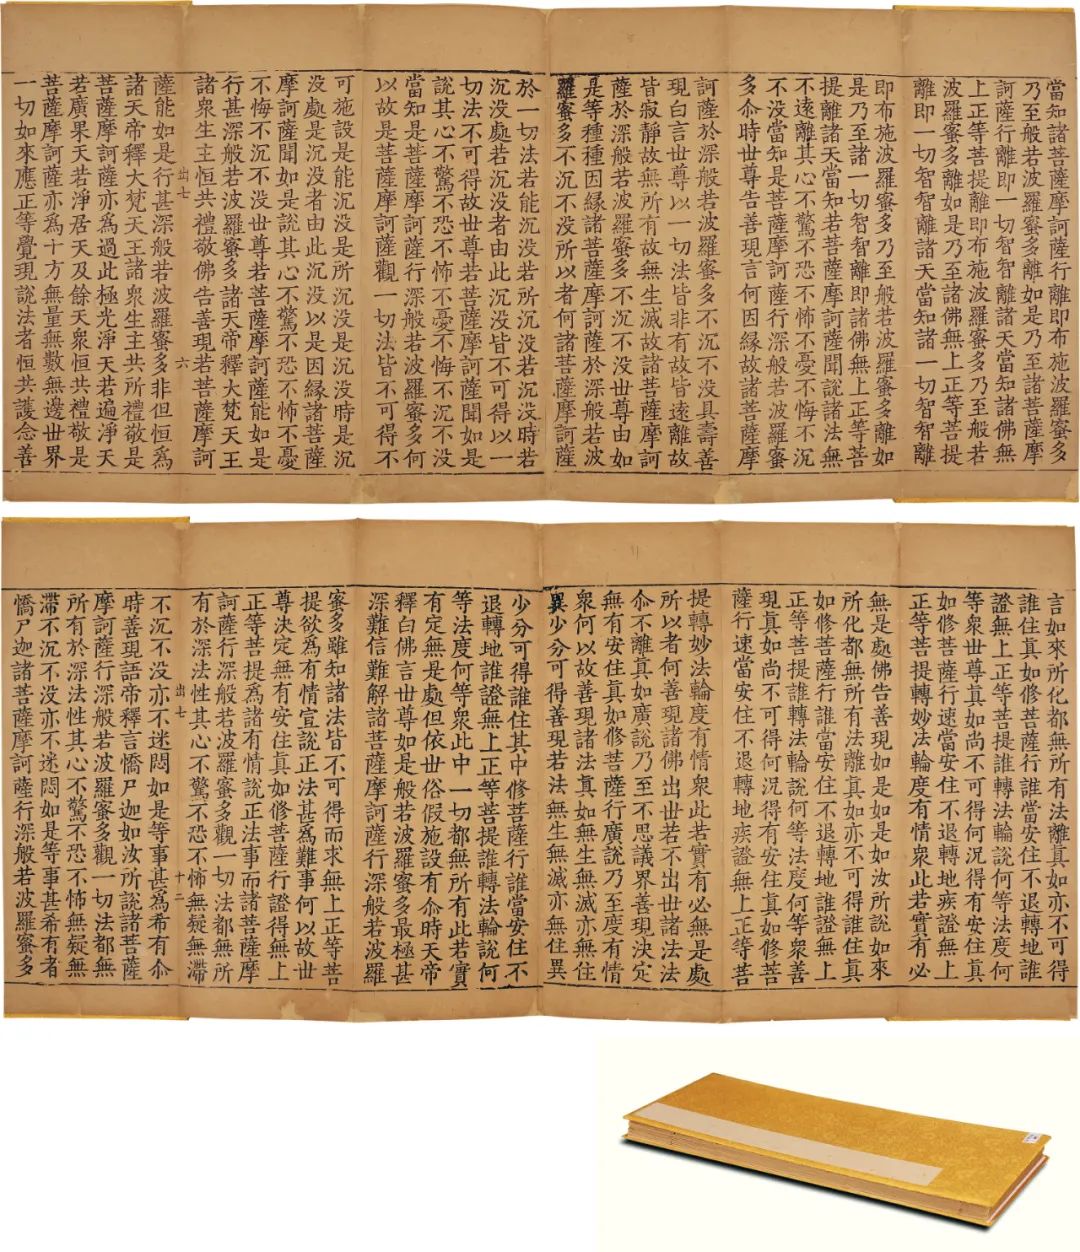 當知諸菩薩摩訶薩行離即布施波羅蜜多
乃至般若波羅蜜多離如是乃至諸菩薩摩
訶薩行離即一切智智離諸天當知諸佛無
上正等菩提離即布施波羅蜜多乃至般若
波羅蜜多離如是乃至諸佛無上正等菩提
離即一切智智離諸天當知諸一切智智離
即布施波羅蜜多乃至般若波羅蜜多離如
是乃至諸一切智智離即諸佛無上正等菩
提離諸天當知若菩薩摩訶薩聞說諸法無
不遠離其心不驚不恐不怖不憂不悔不沉
不沒當知是菩薩摩訶薩行深般若波羅蜜
多尒時世尊告善現言何因緣故諸菩薩摩
訶薩於深般若波羅蜜多不沉不沒具壽善
現白言世尊以一切法皆非有故皆遠離故
皆寂靜故無所有故無生滅故諸菩薩摩訶
薩於深般若波羅蜜多不沉不沒世尊由如
是等種種因緣諸菩薩摩訶薩於深般若波
羅蜜多不沉不沒所以者何諸菩薩摩訶薩
於一切法若能沉沒若所沉沒若沉沒時若
沉沒處若沉沒者由此沉沒皆不可得以一
切法不可得故世尊若菩薩摩訶薩聞如是
說其心不驚不恐不怖不憂不悔不沉不沒
當知是菩薩摩訶薩行深般若波羅蜜多何
以故是菩薩摩訶薩觀一切法皆不可得不
可施設是能沉沒是所沉沒是沉沒時是沉
沒處是沉沒者由此沉沒以是因緣諸菩薩
摩訶薩聞如是說其心不驚不恐不怖不憂
不悔不沉不沒世尊若菩薩摩訶薩能如是
行甚深般若波羅蜜多諸天帝釋大梵天王
諸衆生主恒共禮敬佛告善現若菩薩摩訶
出七 六
薩能如是行甚深般若波羅蜜多非但恒爲
諸天帝釋大梵天王諸衆生主共所禮敬是
菩薩摩訶薩亦爲過此極光淨天若遍淨天
若廣果天若淨居天及餘天衆恒共禮敬是
菩薩摩訶薩亦爲十方無量無數無邊世界
一切如來應正等覺現說法者恒共護念善
言如來所化都無所有法離真如亦不可得
誰住真如修菩薩行誰當安住不退轉地誰
證無上正等菩提誰轉法輪說何等法度何
等衆世尊真如尚不可得何況得有安住真
如修菩薩行速當安住不退轉地疾證無上
正等菩提轉妙法輪度有情衆此若實有必
無是處佛告善現如是如是如汝所說如來
所化都無所有法離真如亦不可得誰住真
如修菩薩行誰當安住不退轉地誰證無上
正等菩提誰轉法輪說何等法度何等衆善
現真如尚不可得何況得有安住真如修菩
薩行速當安住不退轉地疾證無上正等菩
提轉妙法輪度有情衆此若實有必無是處
所以者何善現諸佛出世若不出世諸法法
尒不離真如廣說乃至不思議界善現決定
無有安住真如修菩薩行廣說乃至度有情
衆何以故善現諸法真如無生無滅亦無住
異少分可得善現若法無生無滅亦無住異
少分可得誰住其中修菩薩行誰當安住不
退轉地誰證無上正等菩提誰轉法輪說何
等法度何等衆此中一切都無所有此若實
有定無是處但依世俗假施設有尒時天帝
釋白佛言世尊如是般若波羅蜜多最極甚
深難信難解諸菩薩摩訶薩行深般若波羅
蜜多雖知諸法皆不可得而求無上正等菩
提欲爲有情宣說正法甚爲難事何以故世
尊決定無有安住真如修菩薩行證得無上
正等菩提爲諸有情說正法事而諸菩薩摩
訶薩行深般若波羅蜜多觀一切法都無所
有於深法性其心不驚不恐不怖無疑無滯
出七 十二
不沉不沒亦不迷悶如是等事甚爲希有尒
時善現語帝釋言憍尸迦如汝所說諸菩薩
摩訶薩行深般若波羅蜜多觀一切法都無
所有於深法性其心不驚不恐不怖無疑無
滯不沉不沒亦不迷悶如是等事甚希有者
憍尸迦諸菩薩摩訶薩行深般若波羅蜜多